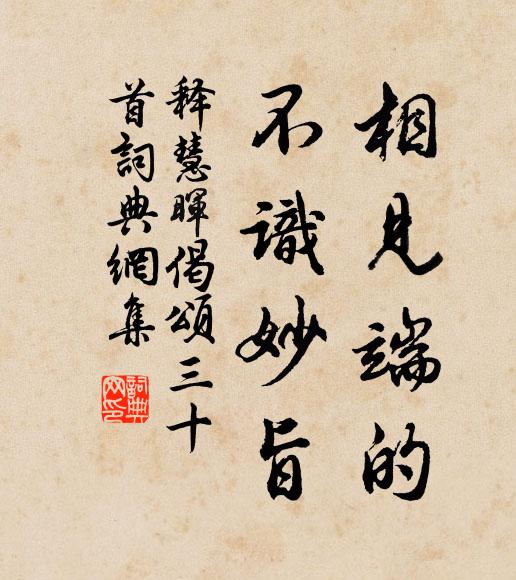 相見端的
不識妙旨
釋慧暉偈頌三十
首詞典網集
詞典
网印